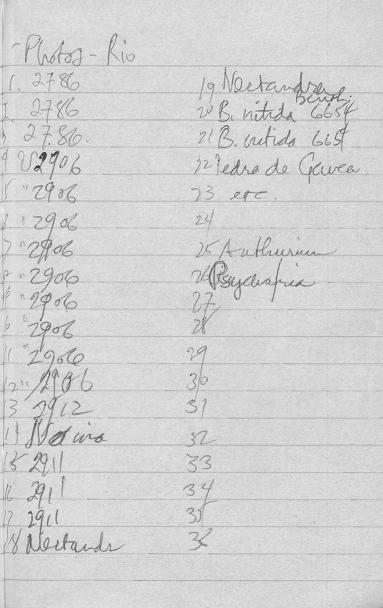 Photos - Rio
1. 2786
2. 2786
3 27.86.
4 2906
5 " 2906
6 " 2906
7 " 2906
8 " 2906
9 " 2906
10 " 2906
11 " 2906
12 " 2906
13 2912
14
15 2911
16 2911
17 2911
18 Nectandr
19 Nectandra
20 B. nitida 6654
21 B. nitida 665
22 Pedra de Gavea
23 etc.
24
25 Anthurium
26 Psychotria
27
28
29
30
31
32
33
34
35
36